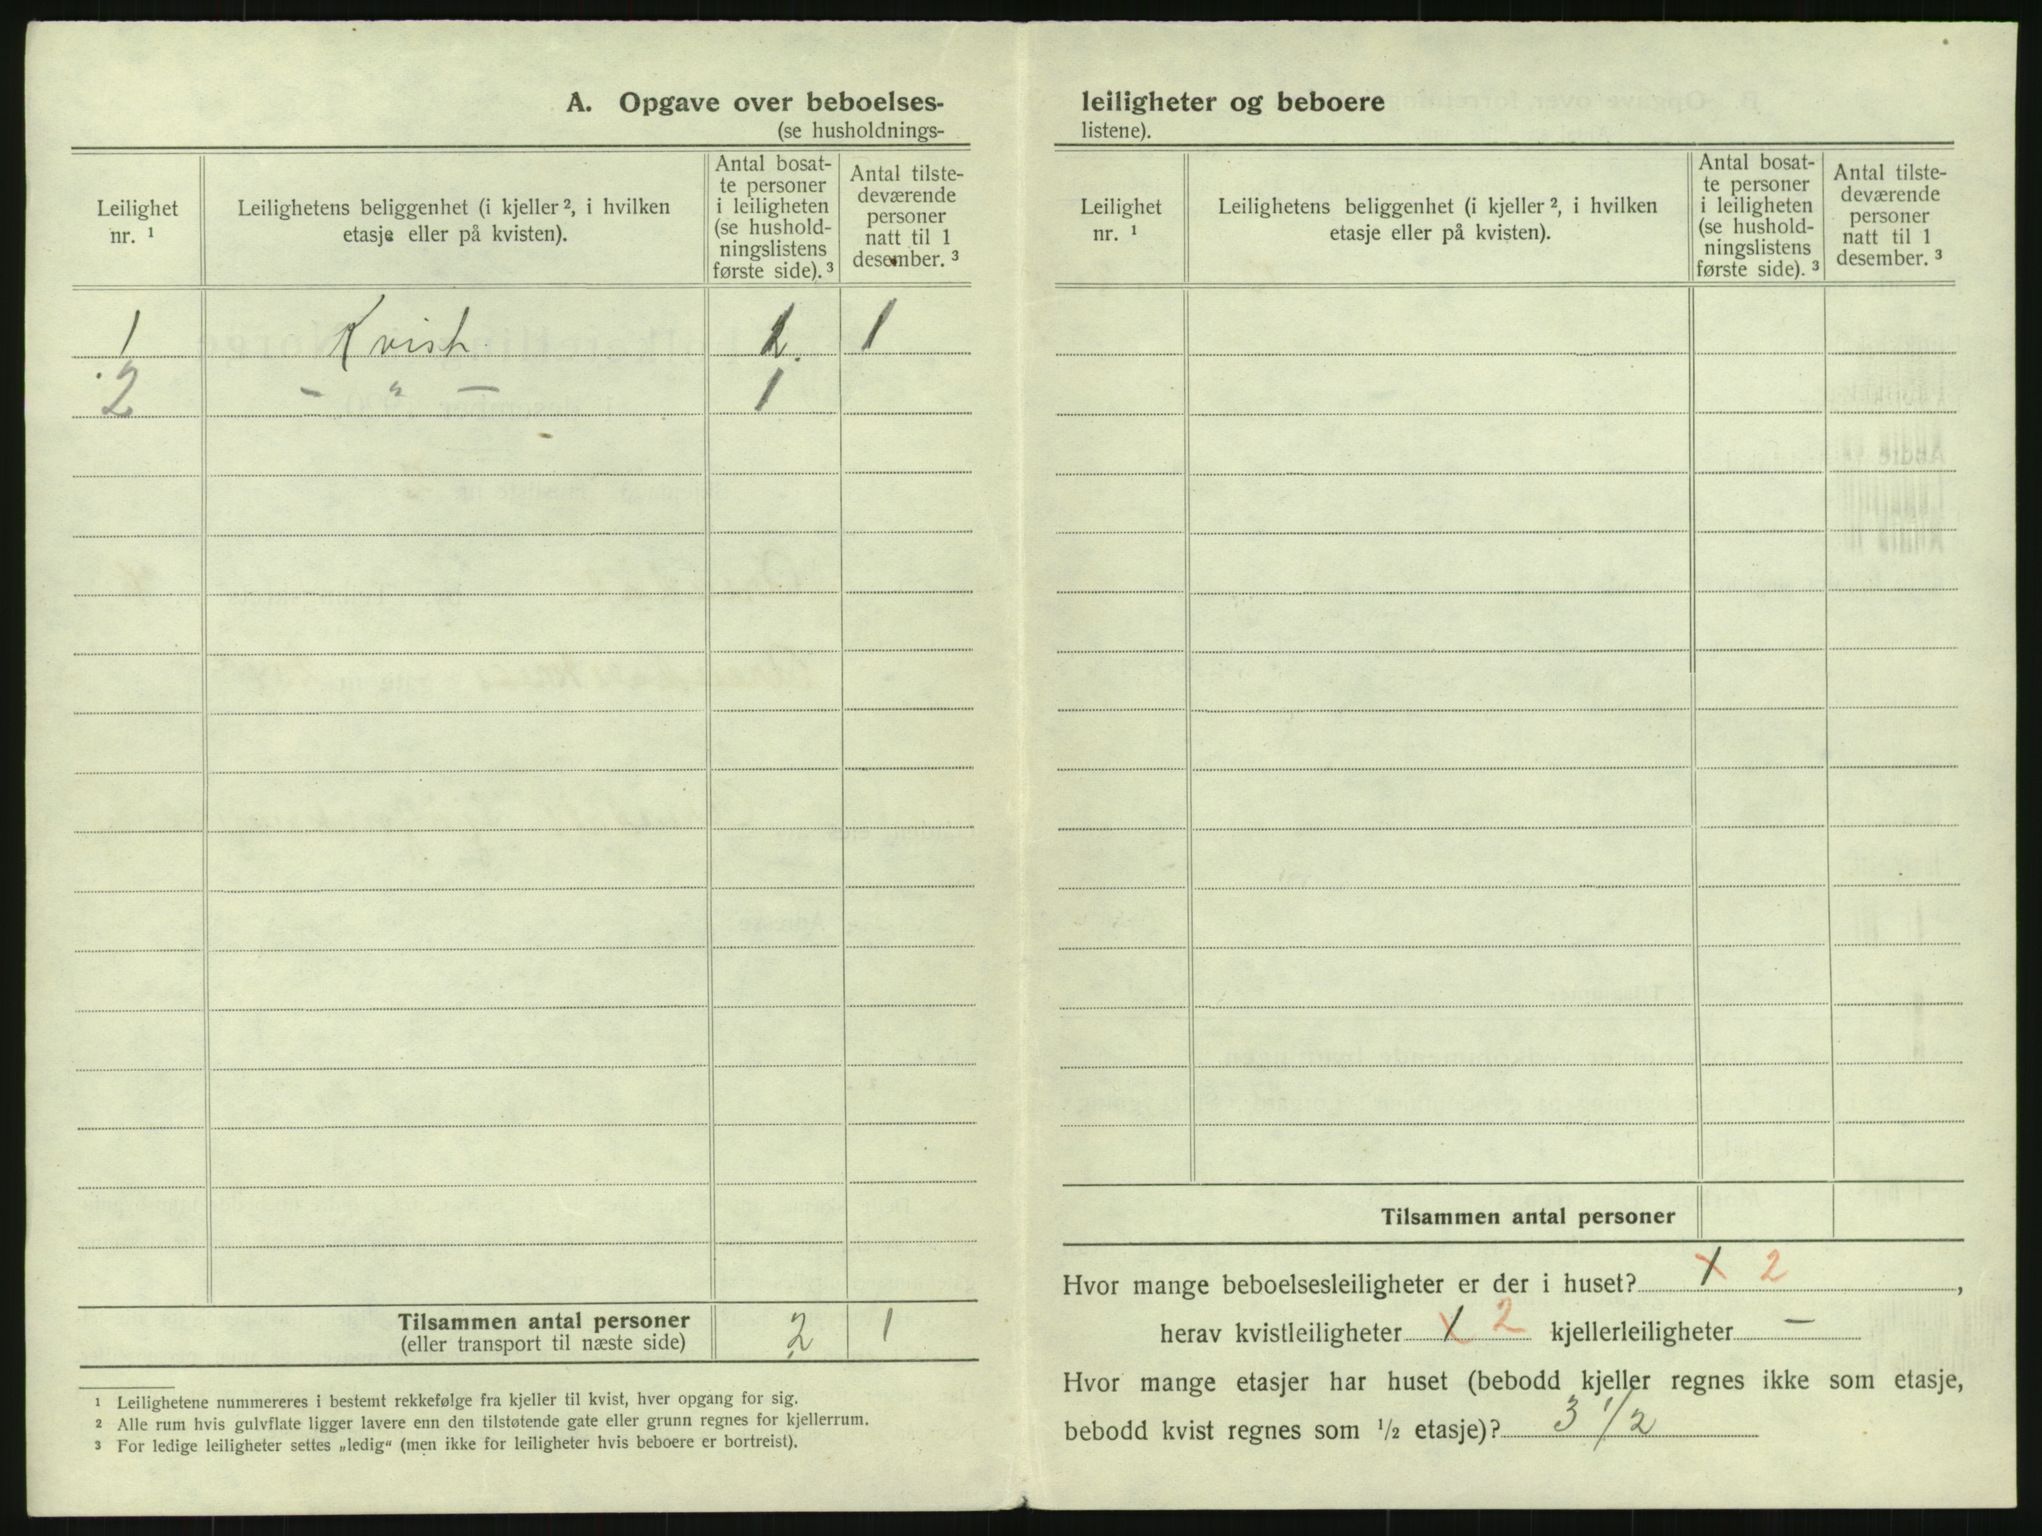 A. Opgave over beboelses-
(se husholdnings-
Leilighet
nr. ¹
Leilighetens beliggenhet (i kjeller ², i hvilken
etasje eller på kvisten).
Antal bosat-
te personer
i leiligheten
(se hushold-
ningslistens
første side). ³
Antal tilste-
deværende
personer
natt til 1
desember. ³
1 Kvist 1
2 - " - 1
Tilsammen antal personer 2 1
(eller transport til næste side)
¹ Leilighetene nummereres i bestemt rekkefølge fra kjeller til kvist, hver opgang for sig.
² Alle rum hvis gulvflate ligger lavere enn den tilstøtende gate eller grunn regnes for kjellerrum.
³ For ledige leiligheter settes „ledig“ (men ikke for leiligheter hvis beboere er bortreist).
leiligheter og beboere
listene).
Leilighet
nr. ¹
Leilighetens beliggenhet (i kjeller ², i hvilken
etasje eller på kvisten).
Antal bosat-
te personer
i leiligheten
(se hushold-
ningslistens
første side). ³
Antal tilste-
deværende
personer
natt til 1
desember. ³
Tilsammen antal personer
Hvor mange beboelsesleiligheter er der i huset? 1 2 ,
herav kvistleiligheter 1 2 kjellerleiligheter —
Hvor mange etasjer har huset (bebodd kjeller regnes ikke som etasje,
bebodd kvist regnes som ½ etasje)? 3 1/2